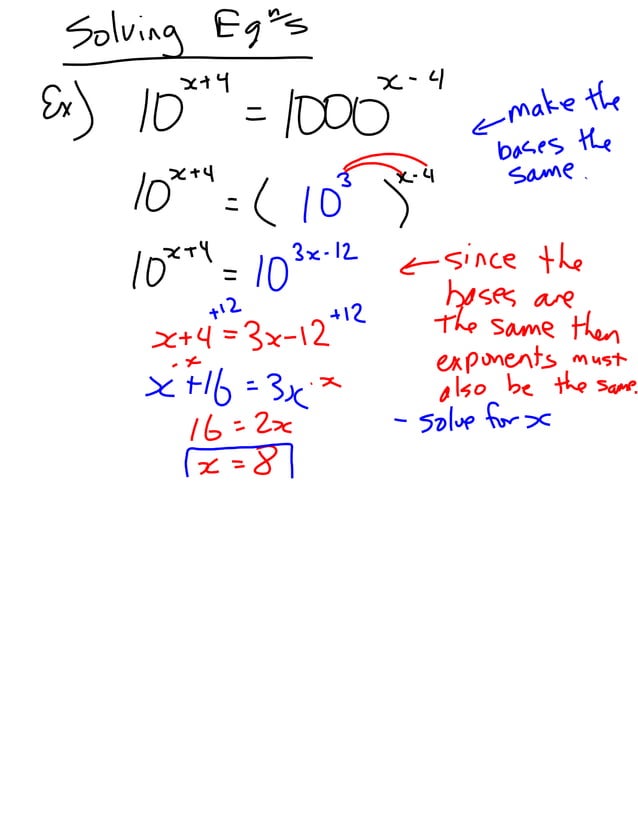 Solving Eqⁿ's
Ex) 10^(x+4) = 1000^(x-4)
← make the
bases the
same.
10^(x+4) = (10^3)^(x-4)
10^(x+4) = 10^(3x-12)
← since the
bases are
the same then
exponents must
also be the same.
- solve for x
+12 +12
x+4 = 3x-12
-x -x
x+16 = 3x
16 = 2x
x = 8